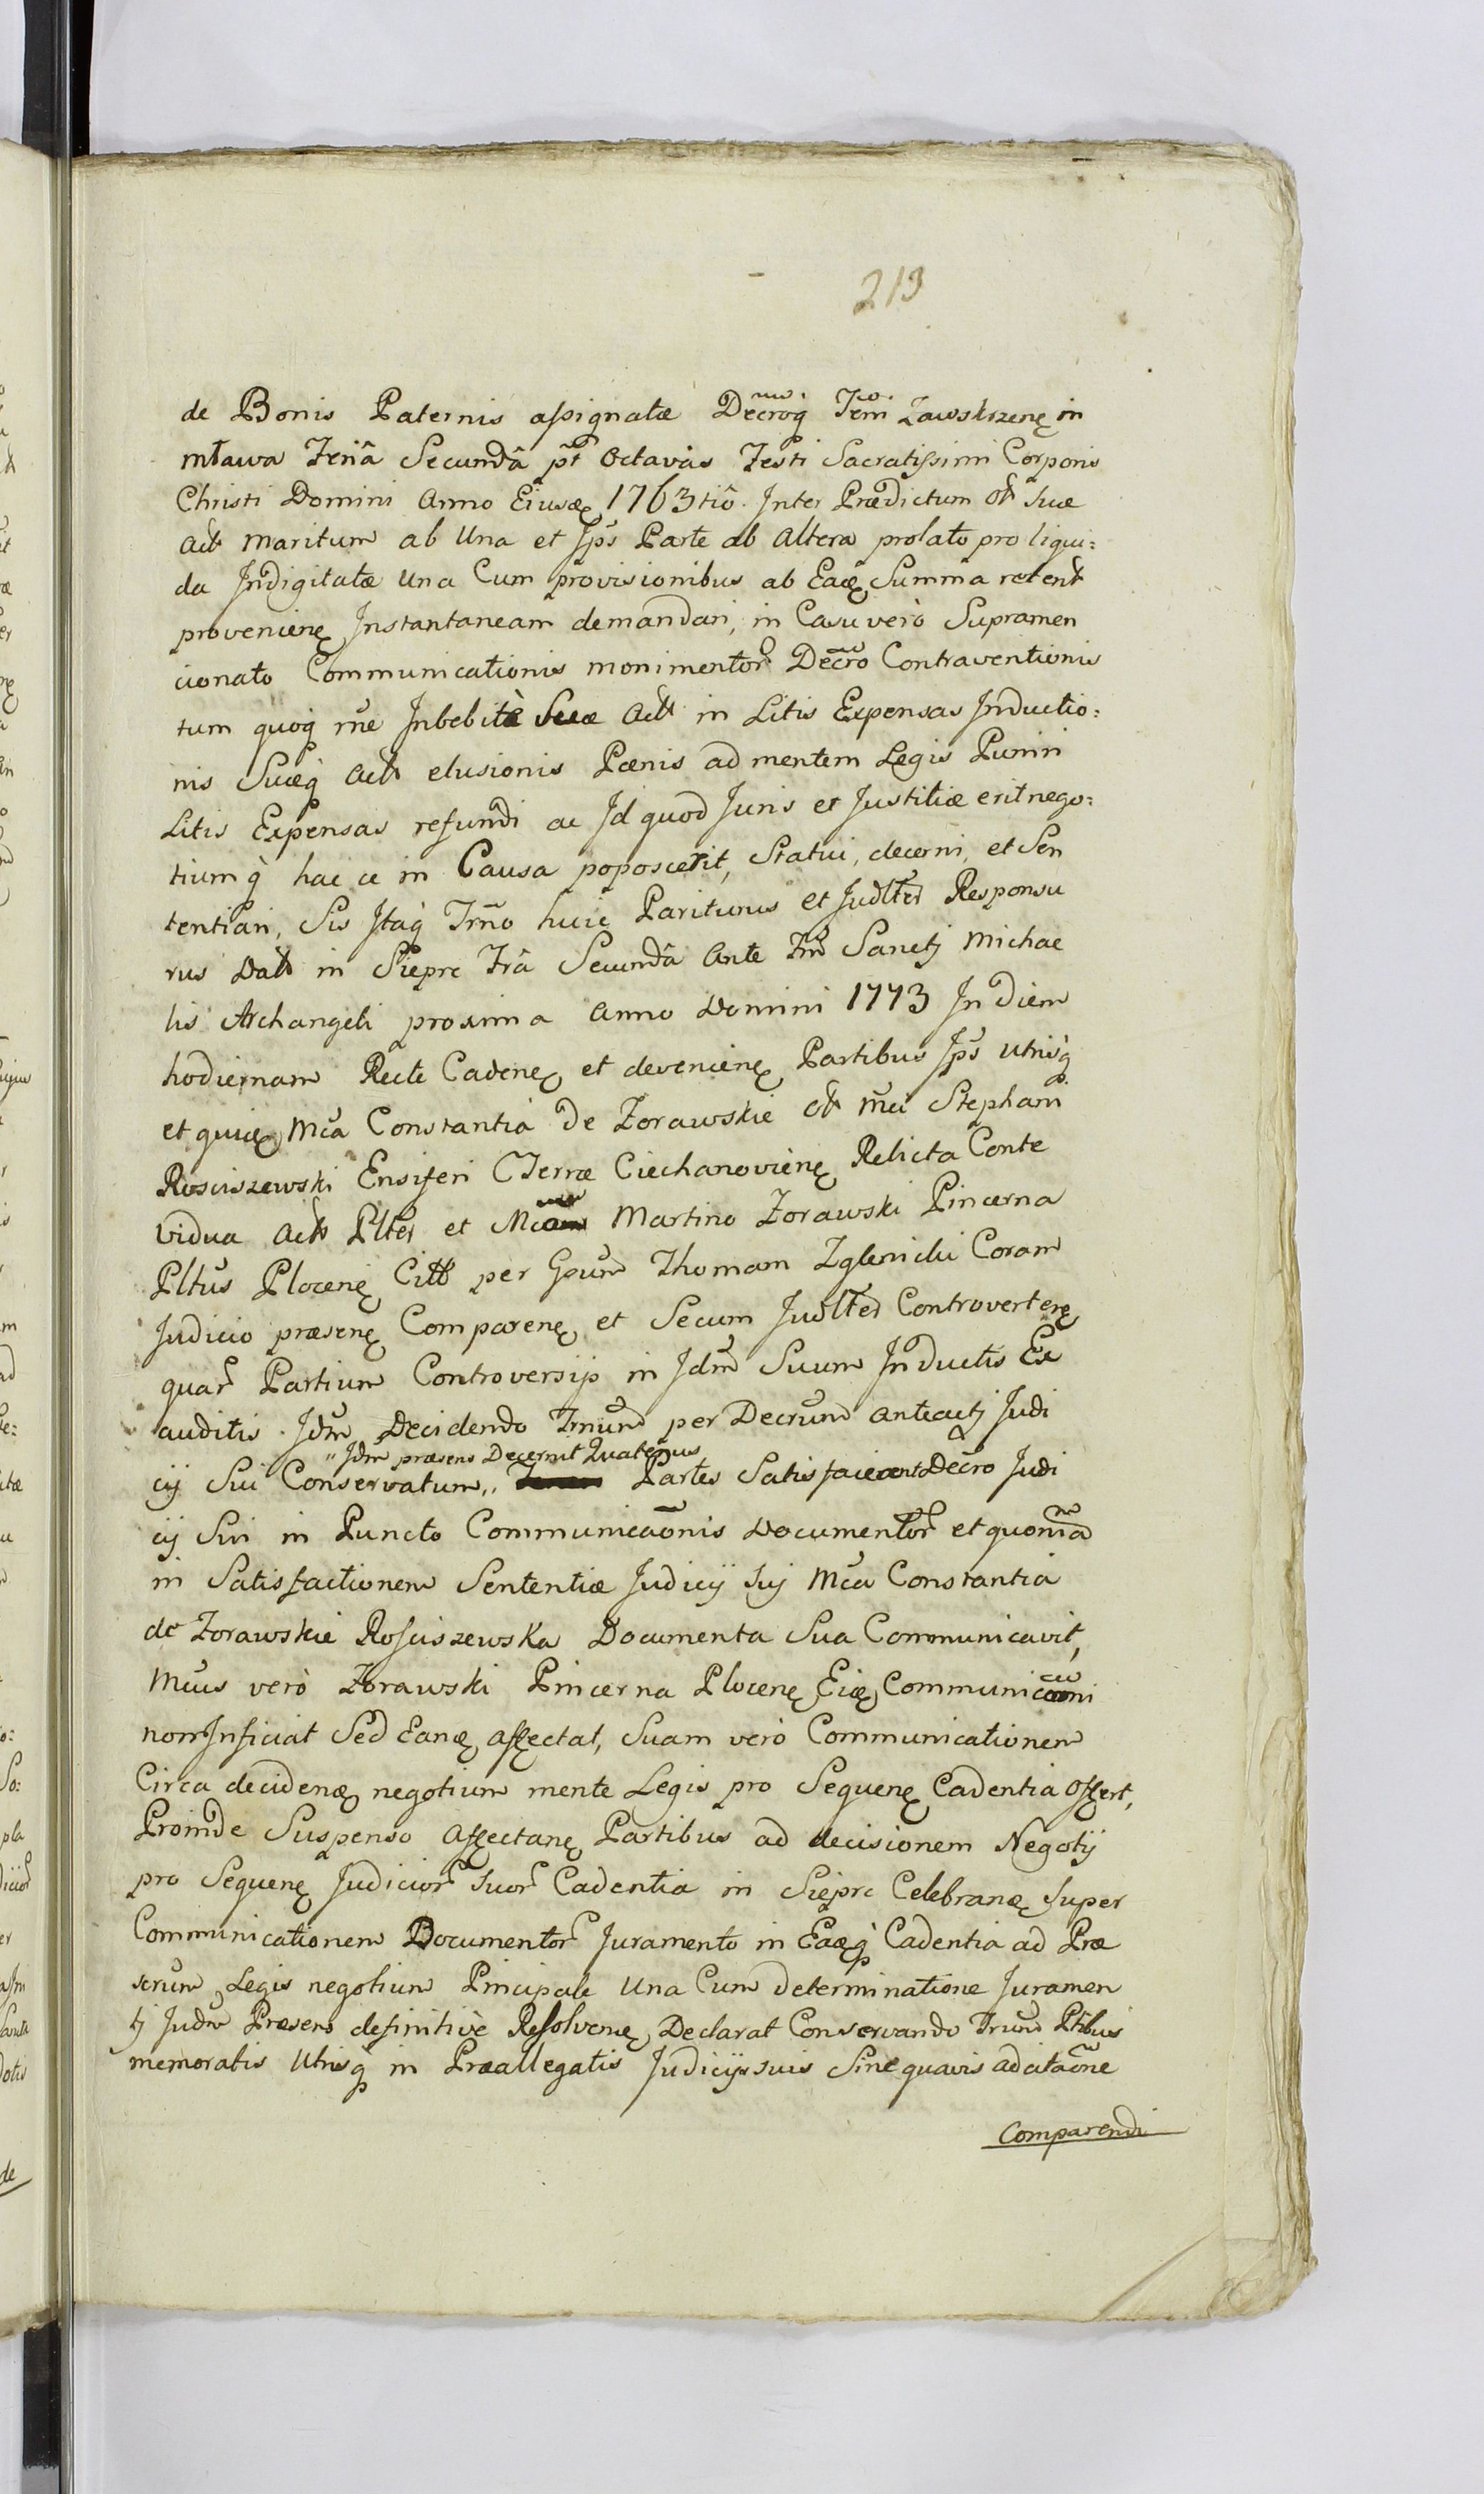 213
de Bonis Paternis assignatæ Decroq̀ Trni Zawskrzenę in
mława Feria Secundâ pt Octavas Festi Sacratissimi Corporis
Christi Domini Anno Eiusdę 1763tiô. Inter Prædictum olt Suæ
Actt maritum ab Una et Ips Parte ab Altera prolato pro liqui:
da Indigitatæ una Cum provisionibus ab Eadę Summa retentt
provenienę Instantaneam demandari, in Casu verò Supramen
cionato Communicationis monimentor Decro Contraventionis
tum quoq̀ rne Inbebitæ Suæ Actt in Litis Expensas Inductio:
nis Suæq̀ Actt elusionis Pænis ad mentem Legis Puniri
Litis Expensas refundi ac Id quod Juris et Justitiæ erit nego:
tiumq̀ hac ce in Causa poposcerit, Statui, decerni, et Sen
tentiari, Sis Itaq̀ Trno huic Pariturus et Judlter Responsu
rus Datt in Sieprc Fria Secundâ Ante Fm Sanctj Michae
lis Archangeli proxima Anno Domini 1773 In Diem
hodiernam Recte Cadenę et devenienę Partibus Ips Utrisq̀
et quidę Mca Constantia De Zorawskie olt mci Stephani
Rosciszewski Ensiferi CTerræ Ciechanovienę Relicta Conte
vidua Actt Plter et Mco Martino Zorawski Pincerna
Pltus Plocenę Citt per Gsum Thomam Zglenicki Coram
Judicio præsenę Comparenę et Secum Judlter Controvertenę
quar Partium Controversijs in Jdm Suum Inductis Ex
auditis. Jdm Decidendo Trnum per Decrum anteactj Judi
"Jdm præsens Decernit Quatenus
cij Sui Conservatum,, Partes Satisfaciant Decro Judi
cij Sui in Puncto Communicaonis Documentor et quoniam
in Satisfactionem Sententiæ Judicij Sij Mca Constantia
de Zorawskie Rosciszewska Documenta Sua Communicavit,
Mcus verò Zorawski Pincerna Plocenę Eidę Communicaoni
non Inficiat Sed Eandę affectat, Suam verò Communicationem
Circa decidendę negotium mente Legis pro Sequenę Cadentia Offert,
Proinde Suspenso Affectanę Partibus ad decisionem Negotij
pro Sequenę Judicior Suor Cadentia in Sieprc Celebrandę Super
Communicationem Documentor Juramento in Eadęq̀ Cadentia ad Præ
scrum Legis negotium Pincipale una Cum determinatione Juramen
tj Judm Præsens definitivè Resolvenę Declarat Conservando Trnum Ptibus
memoratis Utrisq̀ in Præallegatis Judicijs suis Sine quavis adcitaone
Comparendi